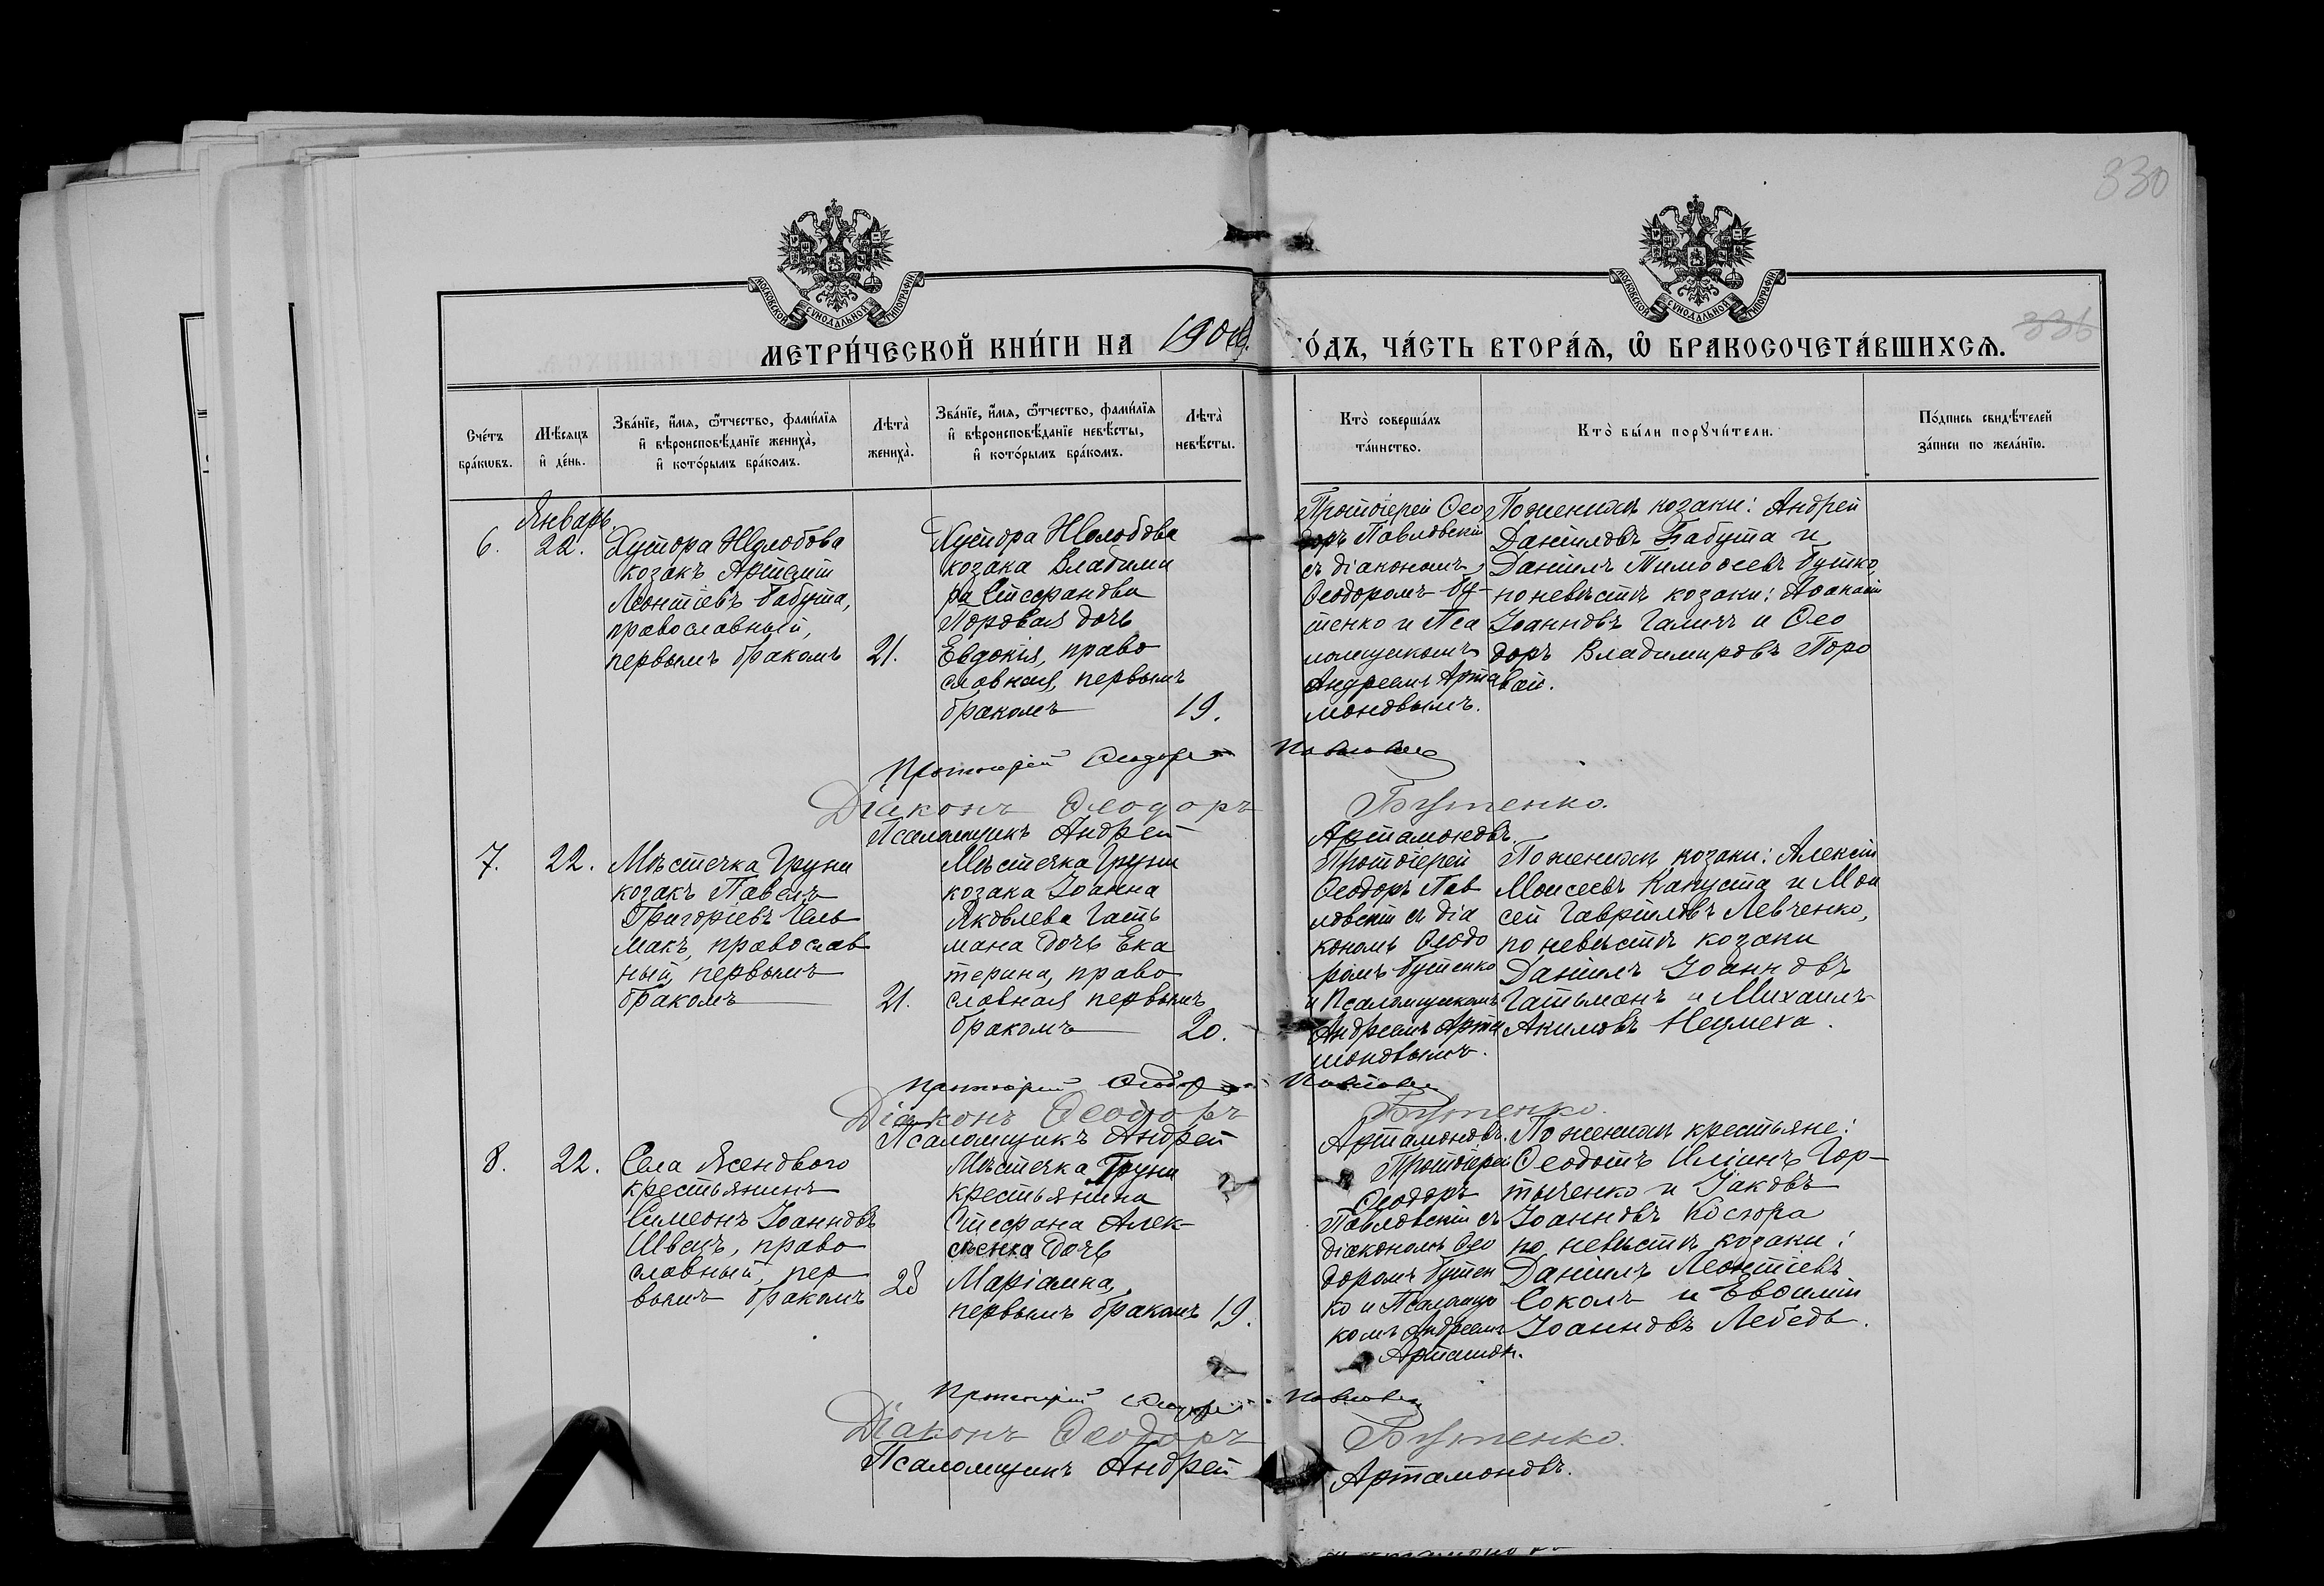 330
МОСКОВСКОЙ СѴНОДАЛЬНОЙ ТИПОГРАФІИ
МОСКОВСКОЙ СѴНОДАЛЬНОЙ ТИПОГРАФІИ
МЕТРИ́ЧЕСКОЙ КНИ́ГИ НА 190
О́ДЪ, ЧА́СТЬ ВТОРА́Ѧ, Ѿ БРАКОСОЧЕТА́ВШИХСѦ.
336
Сче́тъ бра́кѡвъ.
Мѣ́сяцъ и҆ де́нь.
Зва́нїе, и҆́мѧ, ѻ҆́тчество, фами́лїѧ
и҆ вѣроисповѣ́данїе жениха̀,
и҆ кото́рымъ бра́комъ.
Лѣта̀ жениха̀.
Зва́нїе, и҆́мѧ, ѻ҆́тчество, фами́лїѧ
и҆ вѣроисповѣ́данїе невѣ́сты,
и҆ кото́рымъ бра́комъ.
Лѣта̀ невѣ́сты.
Кто̀ соверша́лъ
та́инство.
Кто̀ бы́ли порꙋчи́тели.
По́дпись свидѣ́телей
за́писи по жела́нїю.
Январь.
6.
22.
Хутора Жолобова
козакъ
Леонтіевъ Бабута,
православный,
первымъ бракомъ
21.
Хутора Жолобова
козака Владими
ра Стефанова
Поровая дочь
Евдокія, право
славная, первымъ
бракомъ
19.
Протоіерей Ѳео
доръ Павловскій
съ діакономъ
Ѳеодоромъ Бу-
тенко и Пса
ломщикомъ
Андреемъ Арта
моновымъ.
По женихѣ козаки: Андрей
Даніиловъ Бабута и
Даніилъ Тимоѳеевъ Бутко,
по невѣстѣ козаки: Аѳанасій
Іоанновъ Галичъ и Ѳео
доръ Владимировъ Поро
вой.
Протоіерей Ѳеодоръ Павловскій
Діаконъ Ѳеодоръ Бутенко.
Псаломщикъ Андрей Артамоновъ.
7.
22.
Мѣстечка Груни
козакъ Павелъ
Григоріевъ Чель
макъ, православ
ный, первымъ
бракомъ
21.
Мѣстечка Груни
козака Іоанна
Яковлева Гать
мана дочь Ека
терина, право
славная первымъ
бракомъ
20.
Протоіерей
Ѳеодоръ Пав
ловскій съ діа
кономъ Ѳеодо
ромъ Бутенко
и Псаломщикомъ
Андреемъ Арта
моновымъ.
По женихѣ козаки: Алексій
Моисеевъ Капуста и Мои
сей Гавріиловъ Левченко,
по невѣстѣ козаки
Даніилъ Іоанновъ
Гатьманъ и Михаилъ
Акимовъ
Протоіерей Ѳеодоръ Павловскій
Діаконъ Ѳеодоръ Бутенко.
Псаломщикъ Андрей Артамоновъ.
8.
22.
Села Ясенового
крестьянинъ
Симеонъ Іоанновъ
Швецъ, право
славный, пер
вымъ бракомъ
28
Мѣстечка Груни
крестьянина
Стефана Алек-
сѣенка дочь
Маріамна,
первымъ бракомъ
19.
Протоіерей
Ѳеодоръ
Павловскій съ
діакономъ Ѳео
доромъ Бутен
ко и Псаломщи
комъ Андреемъ
Артамон.
По женихѣ крестьяне:
Ѳеодотъ Иліинъ Гор-
тыченко и Іаковъ
Іоанновъ Костюра
по невѣстѣ козаки:
Даніилъ Леонтіевъ
Соколъ и Евѳимій
Іоанновъ Лебедь.
Протоіерей Ѳеодоръ Павловскій
Діаконъ Ѳеодоръ Бутенко.
Псаломщикъ Андрей Артамоновъ.